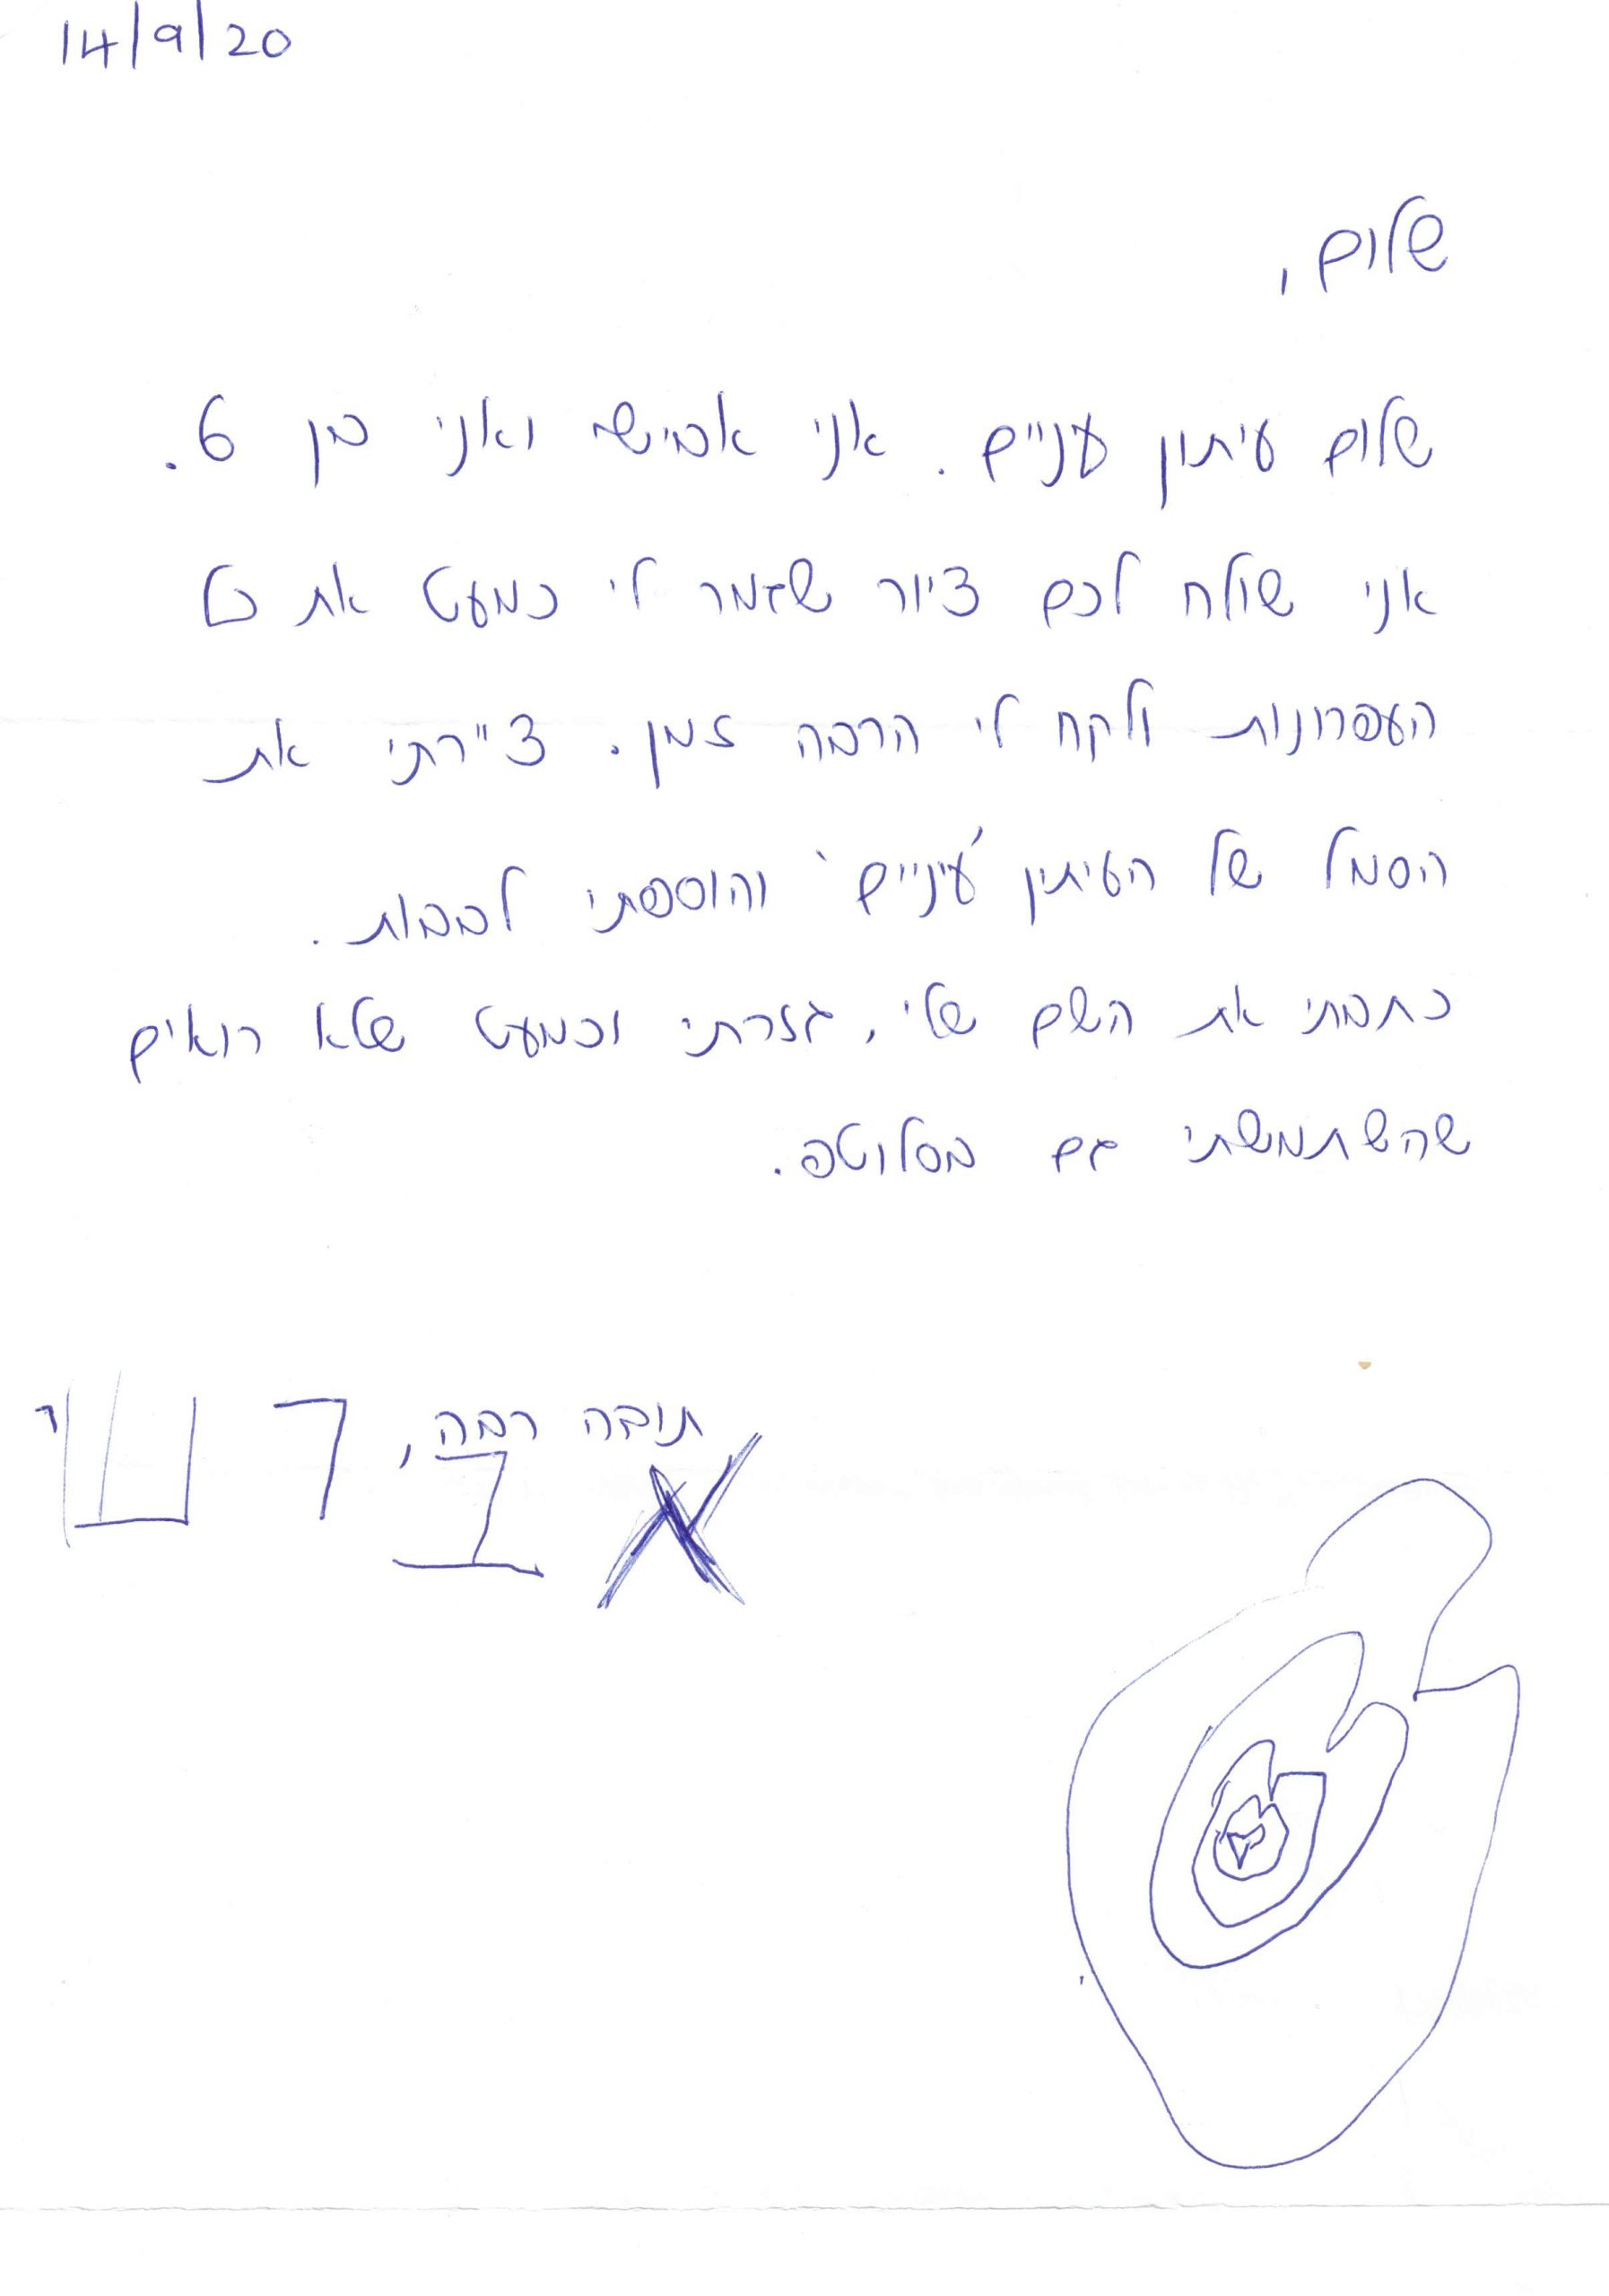 14/9/20
שלום,
שלום עיתון עניים. אני אבישי ואני בן 6.
אני שולח לכם ציור שגמר לי כמעט את כל
העפרונות ולקח לי הרבה זמן. ציירתי את
הסמל של העיתון 'עיניים' והוספתי לבבות.
כתבתי את השם שלי, גזרתי וכמעט שלא רואים
שהשתמשתי גם בסלוטפ.
תודה רבה,
א ב י ש י